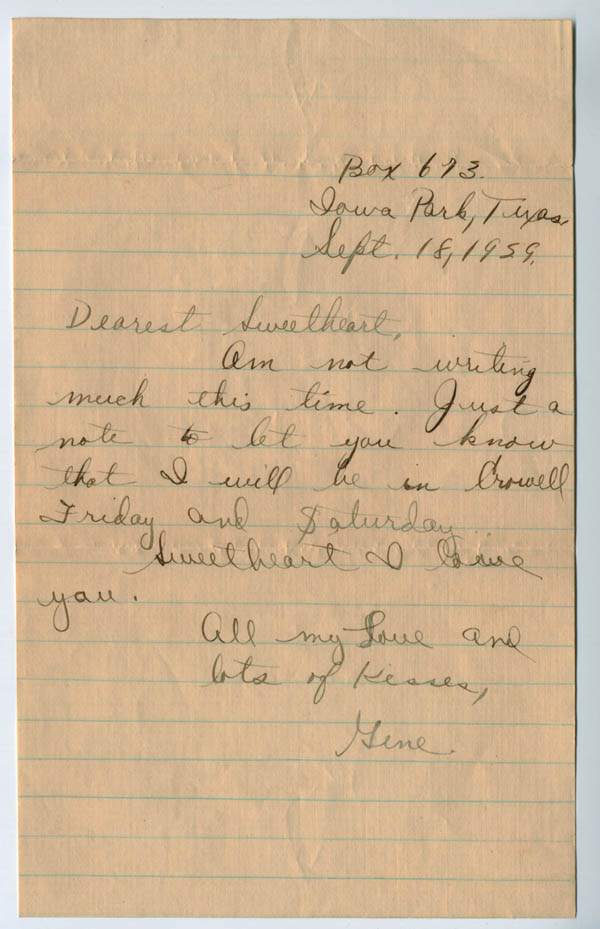 Box 673.
Iowa Park, Texas,
Sept. 18, 1929.
Dearest Sweetheart,
Am not writing
much this time. Just a
note to let you know
that I will be in Crowell
Friday and Saturday.
Sweetheart I love
you.
All my Love and
lots of Kisses,
Gene.